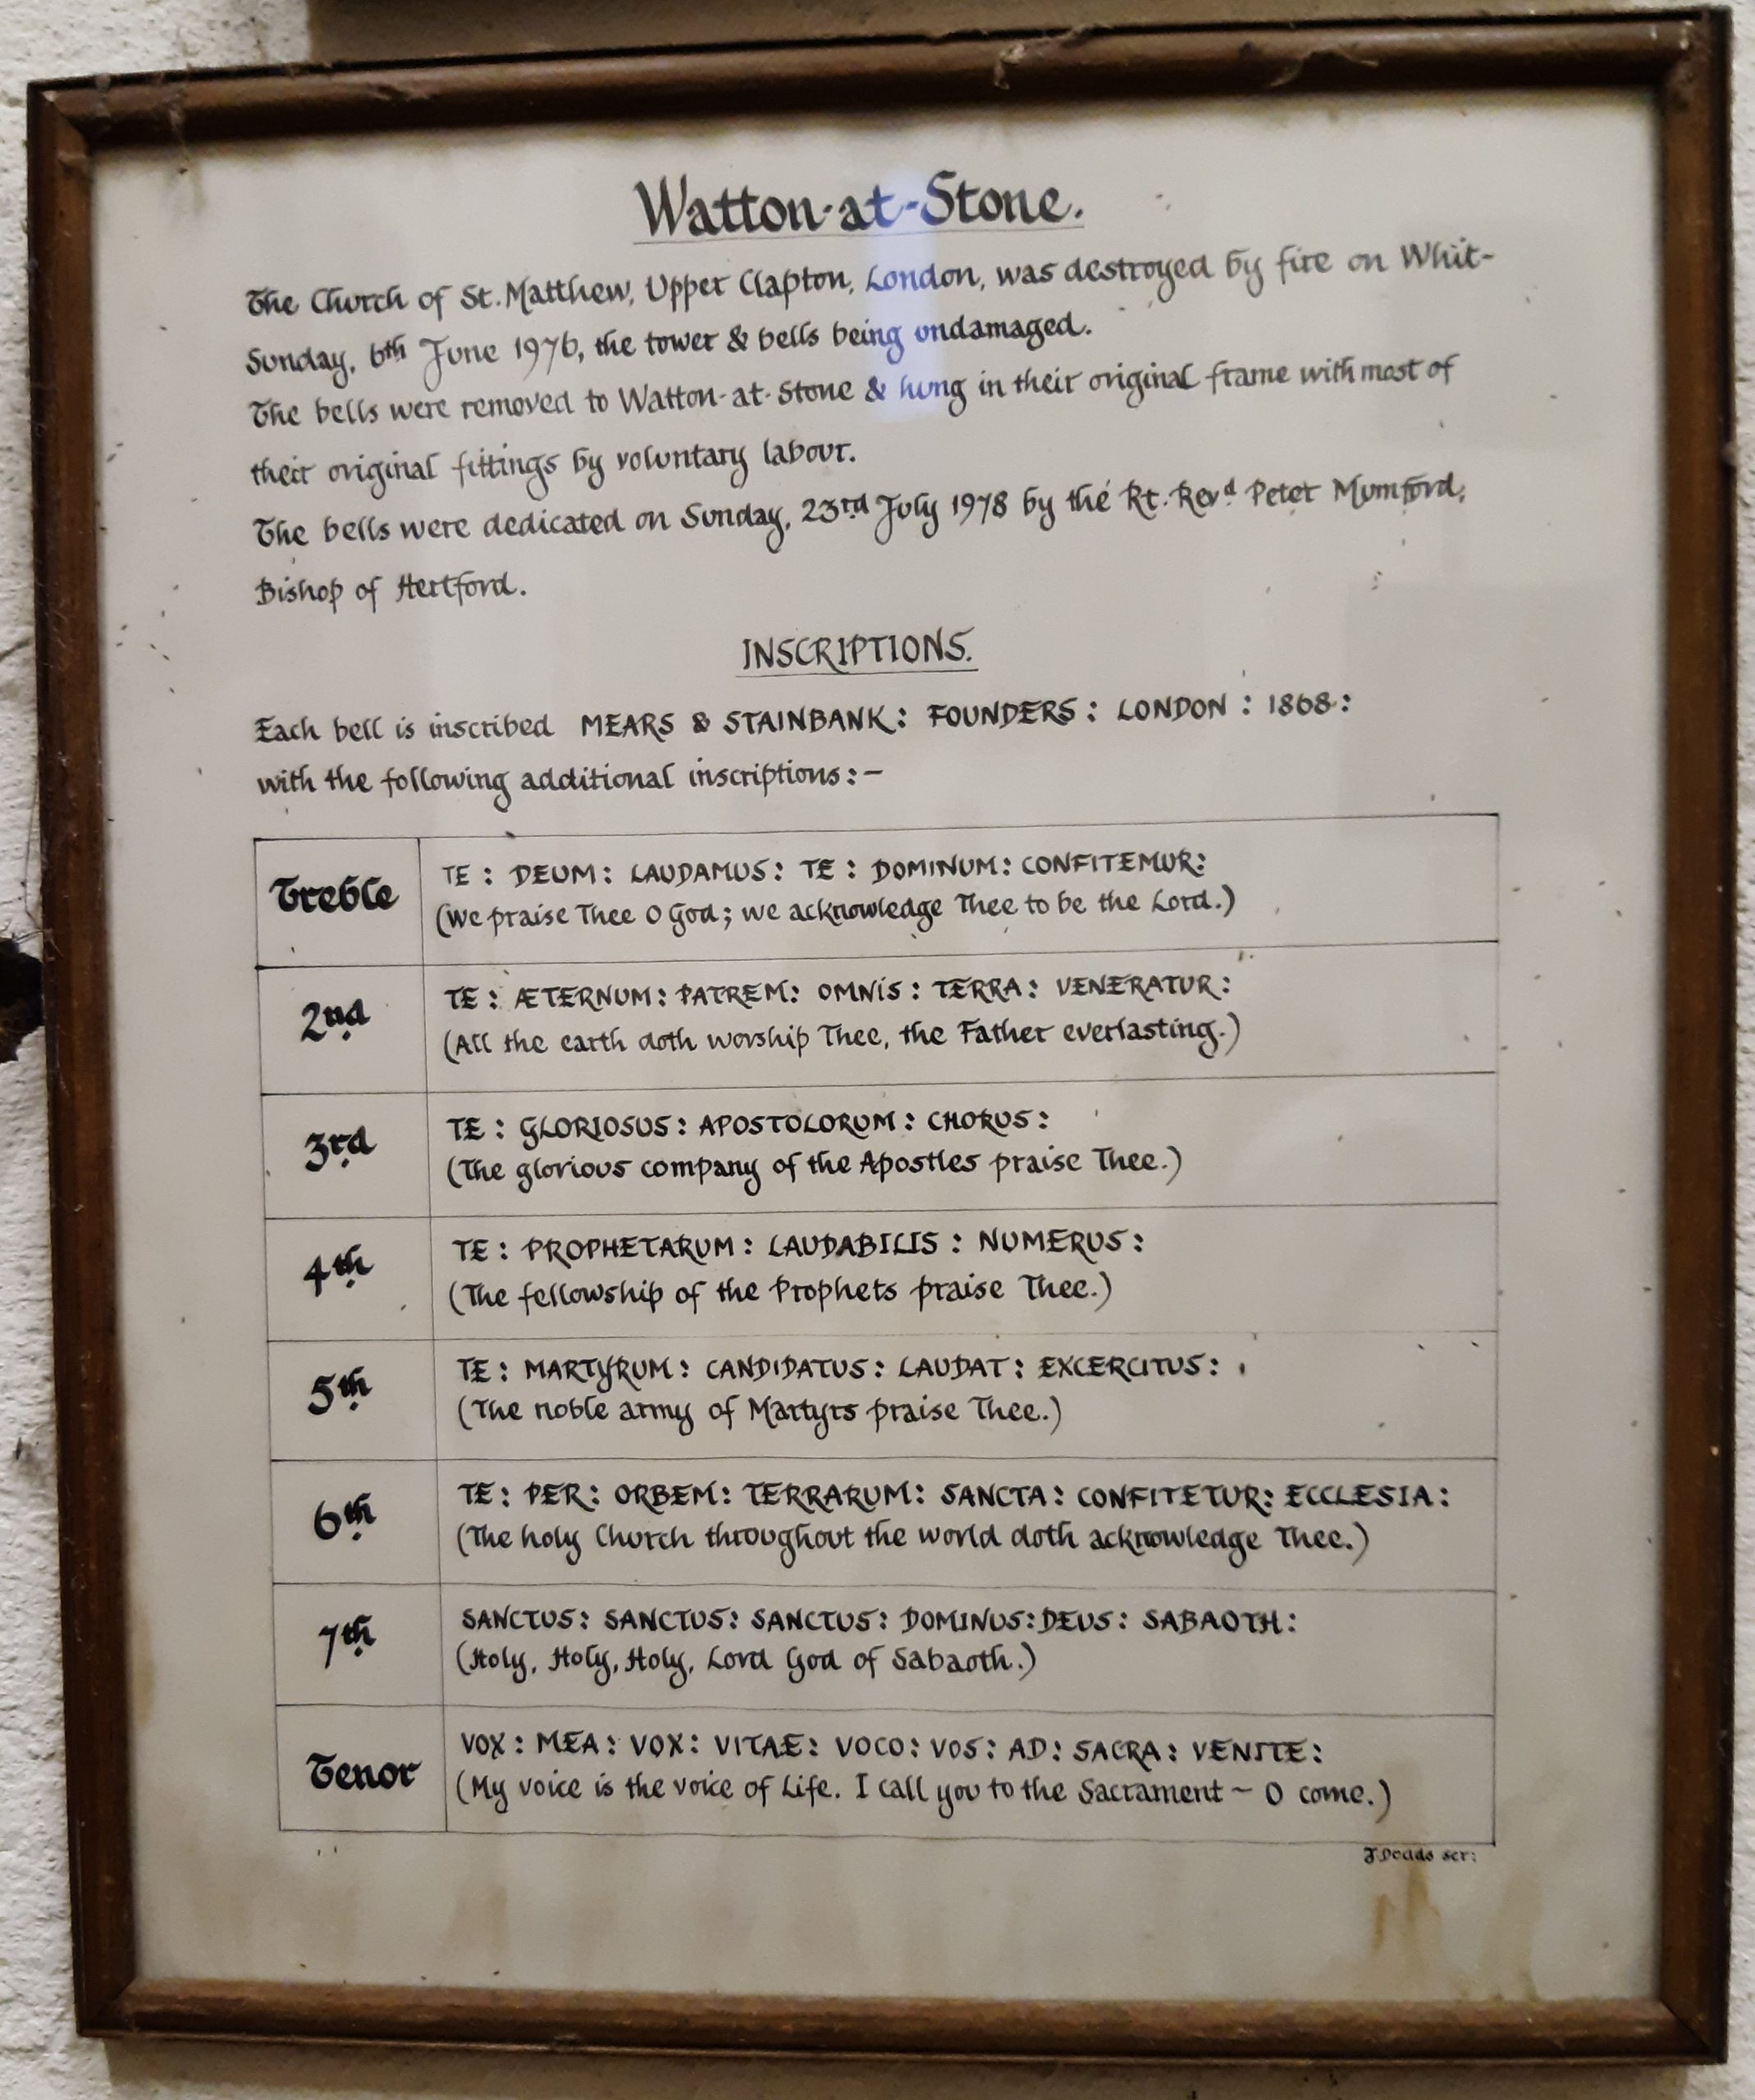 Watton-at-Stone.
The Church of St. Matthew, Upper Clapton, London, was destroyed by fire on Whit-
Sunday, 6th June 1976, the tower & bells being undamaged.
The bells were removed to Watton-at-Stone & hung in their original frame with most of
their original fittings by voluntary labour.
The bells were dedicated on Sunday, 23rd July 1978 by the Rt. Revd Peter Mumford,
Bishop of Hertford.
INSCRIPTIONS.
Each bell is inscribed MEARS & STAINBANK: FOUNDERS: LONDON: 1868:
with the following additional inscriptions:-
Treble
TE: DEUM: LAUDAMUS: TE: DOMINUM: CONFITEMUR:
(We praise Thee O God; we acknowledge Thee to be the Lord.)
2nd
TE: ÆTERNUM: PATREM: OMNIS: TERRA: VENERATUR:
(All the earth doth worship Thee, the Father everlasting.)
3rd
TE: GLORIOSUS: APOSTOLORUM: CHORUS:
(The glorious company of the Apostles praise Thee.)
4th
TE: PROPHETARUM: LAUDABILIS: NUMERUS:
(The fellowship of the Prophets praise Thee.)
5th
TE: MARTYRUM: CANDIDATUS: LAUDAT: EXCERCITUS:
(The noble army of Martyrs praise Thee.)
6th
TE: PER: ORBEM: TERRARUM: SANCTA: CONFITETUR: ECCLESIA:
(The holy Church throughout the world doth acknowledge Thee.)
7th
SANCTUS: SANCTUS: SANCTUS: DOMINUS: DEUS: SABAOTH:
(Holy, Holy, Holy, Lord God of Sabaoth.)
Tenor
VOX: MEA: VOX: VITAE: VOCO: VOS: AD: SACRA: VENITE:
(My voice is the voice of Life. I call you to the Sacrament ~ O come.)
J. Dodds scr: